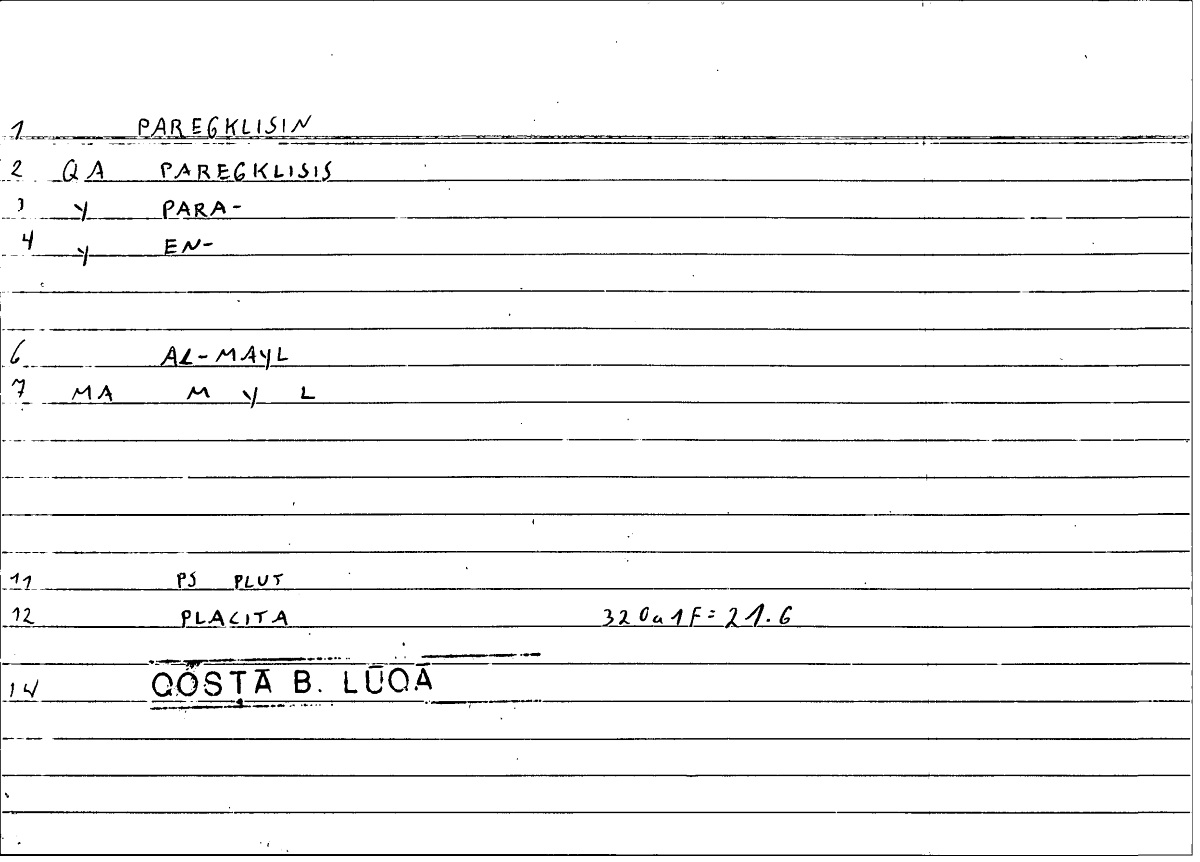 1 PAREGKLISIN
2 QA PAREGKLISIS
3 Y PARA-
4 Y EN-
6 AL-MAYL
7 MA M Y L
11 PS PLUT
12 PLACITA 320a1F=21.6
14 QOSṬĀ B. LŪQĀ